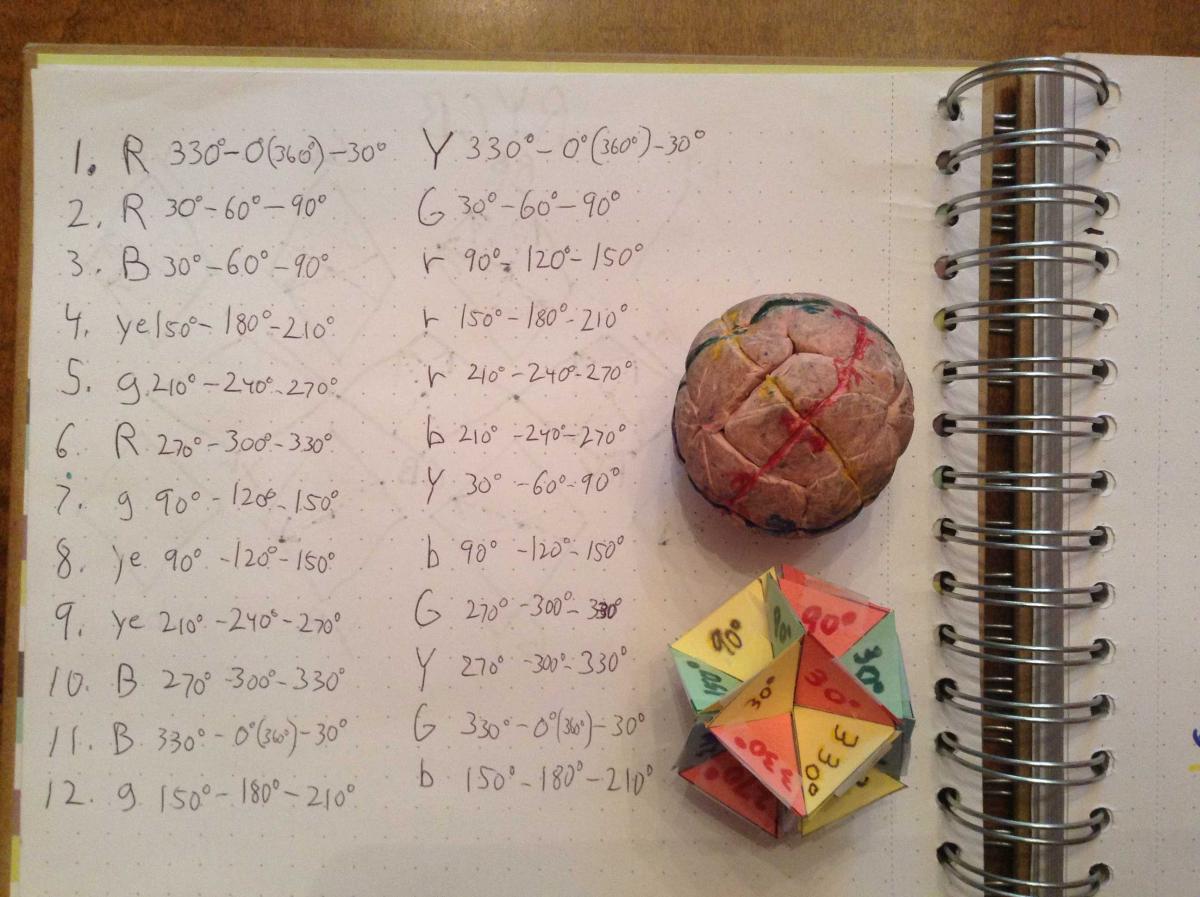 1. R 330°-0°(360°)-30° Y 330°-0°(360°)-30°
2. R 30°-60°-90° G 30°-60°-90°
3. B 30°-60°-90° r 90°-120°-150°
4. ye 150°-180°-210° r 150°-180°-210°
5. g 210°-240°-270° r 210°-240°-270°
6. R 270°-300°-330° b 210°-240°-270°
7. g 90°-120°-150° Y 30°-60-90°
8. ye 90°-120°-150° b 90°-120°-150°
9. ye 210°-240°-270° G 270°-300°-330°
10. B 270°-300°-330° Y 270°-300°-330°
11. B 330°-0°(360°)-30° G 330°-0°(360°)-30°
12. g 150°-180°-210° b 150°-180°-210°
90° 90°
150° 30°
30° 30°
330° 330°